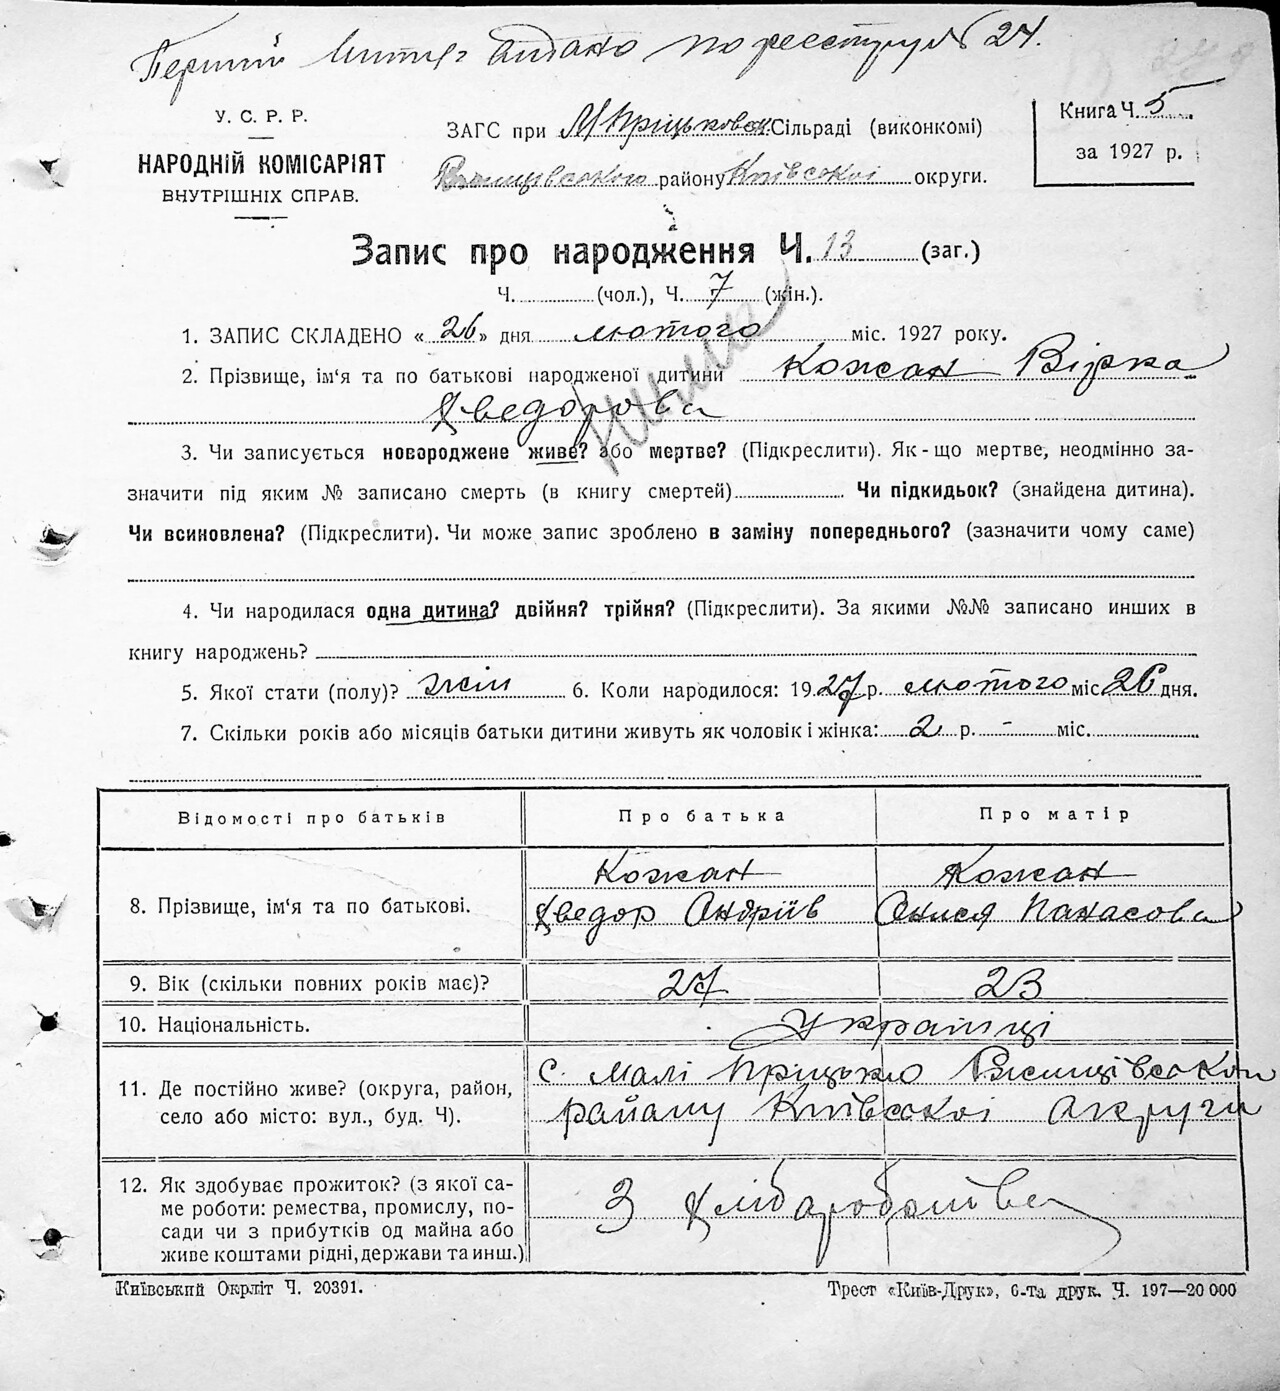 Перший витяг видано по реєстру № 24.
У. С. Р. Р.
НАРОДНІЙ КОМІСАРІЯТ
ВНУТРІШНІХ СПРАВ.
ЗАГС при М Пріцьковск. Сільраді (виконкомі)
Ржищівського району Київської округи.
Книга Ч. 5
за 1927 р.
Запис про народження Ч. 13 (заг.)
Ч. (чол.), Ч. 7 (жін.).
1. ЗАПИС СКЛАДЕНО « 26 » дня лютого міс. 1927 року.
2. Прізвище, ім'я та по батькові народженої дитини Кожан Вірка
Хведорова
3. Чи записується новороджене живе? або мертве? (Підкреслити). Як-що мертве, неодмінно за-
значити під яким № записано смерть (в книгу смертей) Чи підкидьок? (знайдена дитина).
Чи всиновлена? (Підкреслити). Чи може запис зроблено в заміну попереднього? (зазначити чому саме)
4. Чи народилася одна дитина? двійня? трійня? (Підкреслити). За якими №№ записано инших в
книгу народжень?
5. Якої стати (полу)? жін 6. Коли народилося: 1927 р. лютого міс 26 дня.
7. Скільки років або місяців батьки дитини живуть як чоловік і жінка: 2 р. - міс.
Відомості про батьків Про батька Про матір
Кожан Кожан
8. Прізвище, ім'я та по батькові. Хведор Андріїв Панасова
9. Вік (скільки повних років має)? 27 23
10. Національність. Українці
11. Де постійно живе? (округа, район, с. Малі Пріцьки Ржищівськои
село або місто: вул., буд. Ч). району Київської округи
12. Як здобуває прожиток? (з якої са-
ме роботи: ремества, промислу, по- З хліборобства
сади чи з прибутків од майна або
живе коштами рідні, держави та инш.)
Київський Окрліт Ч. 20391.
Трест «Київ-Друк», 6-та друк. Ч. 197—20 000